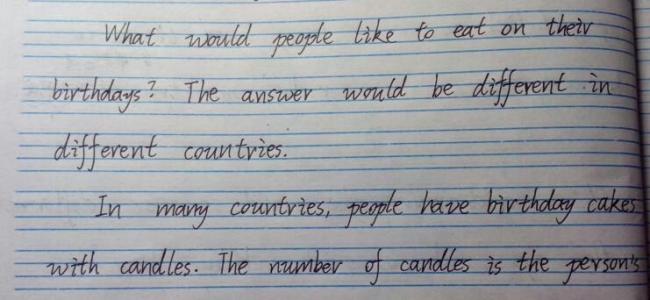 What would people like to eat on their
birthdays? The answer would be different in
different countries.
In many countries, people have birthday cakes
with candles. The number of candles is the person's